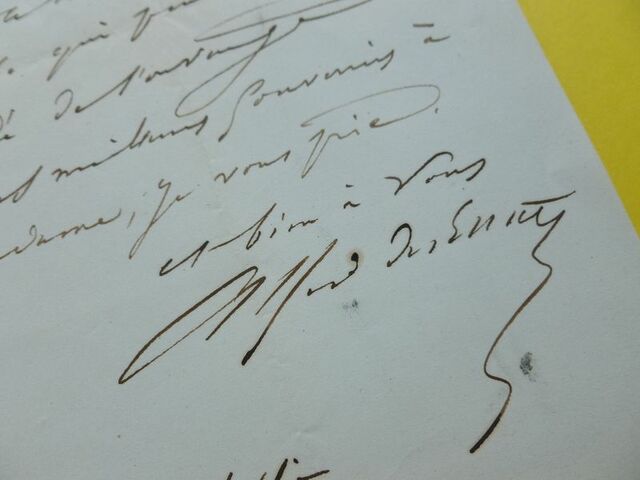 qui
de l'ouvrage
meilleurs souvenirs à
dame, je vous prie.
et bien à vous
Alfred des Essarts